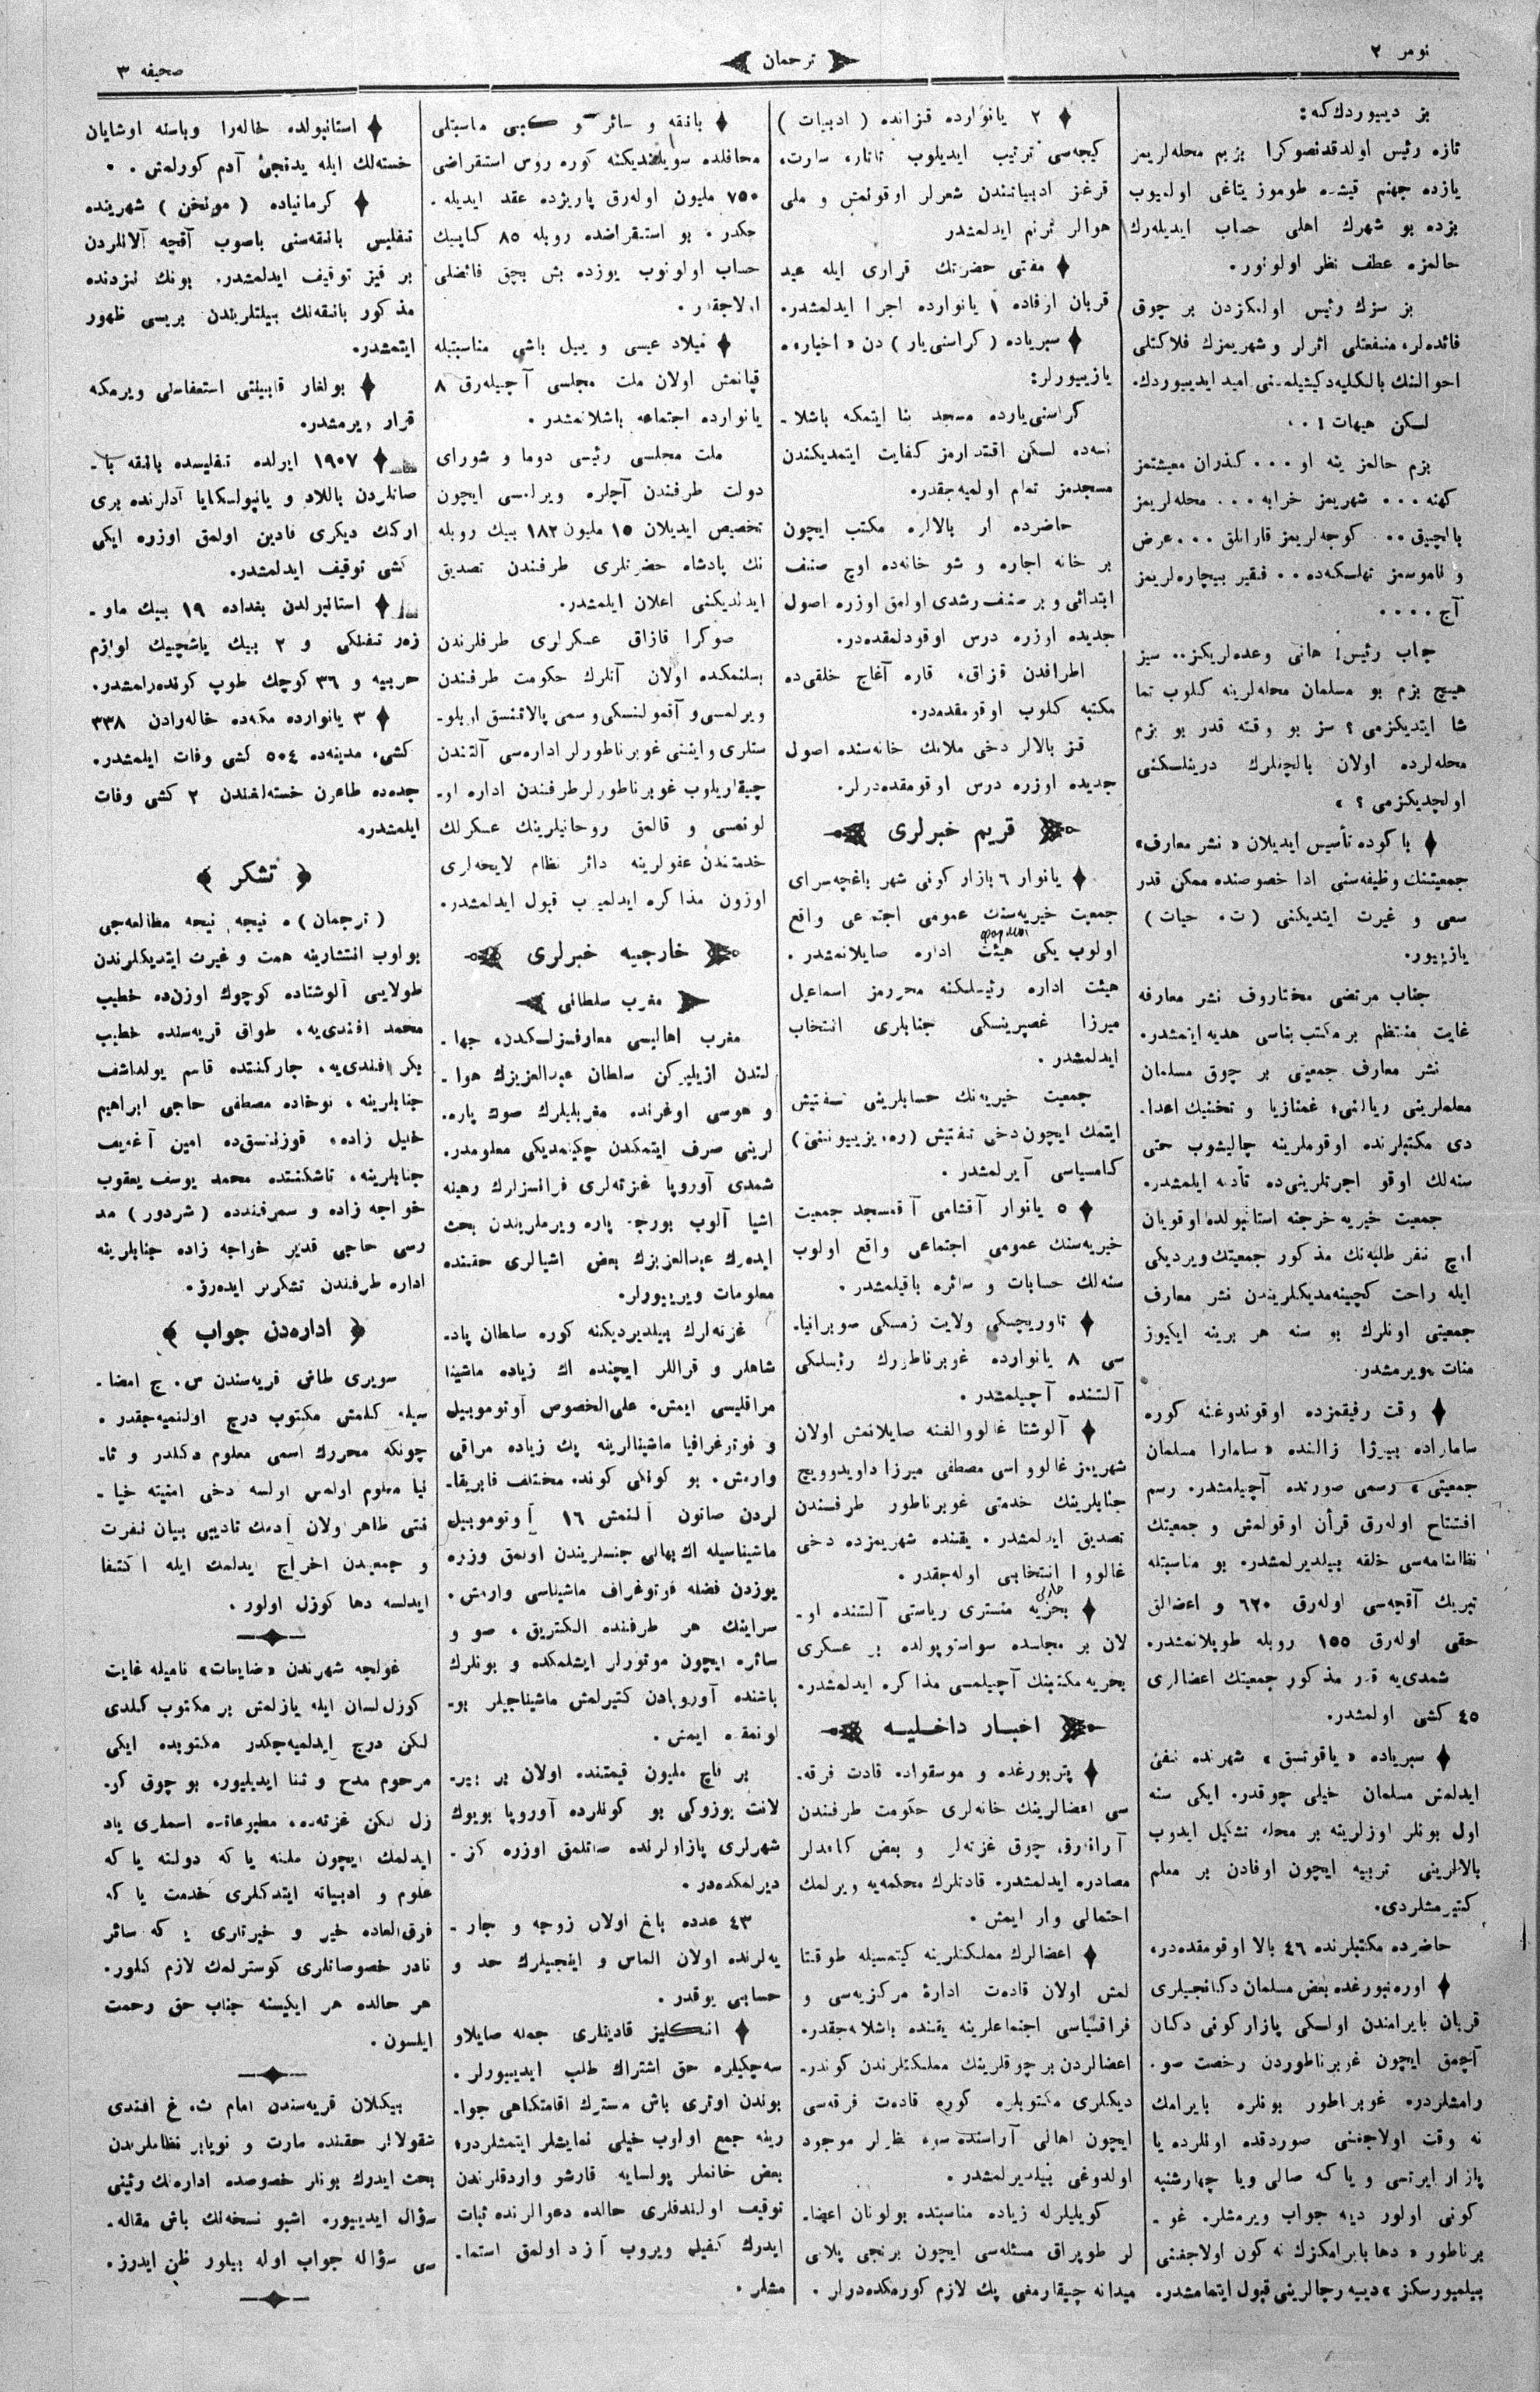 نومر ٢
ترجمان
صحیفه ٣
بز دیيوردك كه:
تازه رئیس اولدقدنصوكرا بزیم محله‌لریمز
یازده جهنم قیشده طوموز یتاغی اولمیوب
بزده بو شهرك اهلی حساب ایدیله‌رك
حالمزه عطف نظر اولونور.
بز سزك رئیس اولمكزدن بر چوق
فائده‌لر، منفعتلی اثرلر و شهریمزك فلاكتلی
احوالنك بالكلیه دكیشیلمه‌سنی امید ایدیيوردك.
لسكن هیهات !..
بزم حالمز ینه او ... كذران معیشتمز
كهنه ... شهریمز خرابه ... محله‌لریمز
بالچیق .. كوجه‌لریمز قارانلق ... عرض
و ناموسمز تهلسكه‌ده .. فقیر بیچاره‌لریمز
آج ....
جناب رئیس! هانی وعده‌لریكز.. سیز
هیچ بزم بو مسلمان محله‌لرینه كلوب تما
شا ایتدیكزمی؟ سز بو وقته قدر بو بزم
محله‌لرده اولان بالچقلرك درینلسكنی
اولچدیكزمی؟ »
باكوده تأسیس ایدیلان « نشر معارف»
جمعیتنك وظیفه‌سنی ادا خصوصنده ممكن قدر
سعی و غیرت ایتدیكنی (ت. حیات)
یازییور.
جناب مرتضی مختاروف نشر معارفه
غایت منتظم بر مكتب بناسی هدیه ایتمشدر.
نشر معارف جمعیتی بر چوق مسلمان
معلملرینی ریالنی، غمنازیا و تخنیك اعدا.
دی مكتبلرنده اوقوملرینه چالیشوب حتی
سنه‌لك اوقو اجرتلرینی‌ده تأدیه ایلمشدر.
جمعیت خیریه خرجنه استانبولده اوقویان
اوچ نفر طلبه‌نك مذكور جمعیتك ویردیكی
ایله راحت كچینه‌مدیكلریندن نشر معارف
جمعیتی اونلرك بو سنه هر برینه ایكیوز
منات ویرمشدر.
وقت رفیقمزده اوقوندوغنه كوره
ساماراده بیرژا زالنده « سامارا مسلمان
جمعیتی » رسمی صورتده آچیلمشدر. رسم
افتتاح اوله‌رق قرأن اوقولمش و جمعیتك
نظامنامه‌سی خلقه بیلدیرلمشدر. بو مناسبتله
تبریك آقچه‌سی اوله‌رق ٦٢٠ و اعضالق
حقی اوله‌رق ١٥٥ روبله طوپلانمشدر.
شمدی‌یه قدر مذكور جمعیتك اعضالری
٤٥ كشی اولمشدر.
سبریاده « یاقوتسق » شهرنده نفی
ایدلمش مسلمان خیلی چوقدر. ایكی سنه
اول بونلر اوزلرینه بر محله تشكیل ایدوب
بالالرینی تربیه ایچون اوفادن بر معلم
كتیرمشلردی.
حاضرده مكتبلرنده ٤٦ بالا اوقومقده‌در.
اوره‌نبورغده بعض مسلمان دكانجیلری
قربان بایرامندن اولسكی پازار كونی دكان
آچمق ایچون غوبرناطوردن رخصت صو.
رامشلردر. غوبرناطور بونلره بایرامك
نه وقت اولاجغنی صوردقده اونلرده یا
پازار ایرتسی و یاكه صالی ویا چهارشنبه
كونی اولور دیه جواب ویرمشلر. غو-
برناطور « دها بایرامكزك نه كون اولاجغنی
بیلمیورسكز » دییه رجالرینی قبول ایتمامشدر.
٢ یانوارده قزانده (ادبیات)
كیجه‌سی ترتیب ایدیلوب تاتار، سارت،
قرغز ادبیاتندن شعرلر اوقونمش و ملی
هوالر ترنم ایدلمشدر
مفتی حضرتك قراری ایله عید
قربان اوفاده ١ یانوارده اجرا ایدلمشدر.
سبریاده (كراسنی‌یار) دن « اخبار» ه
یازییورلر:
كراسنی‌یارده مسجد بنا ایتمكه باشلا-
نسه‌ده لسكن اقتدارمز كفایت ایتمدیكندن
مسجدمز تمام اولمیه‌جقدر.
حاضرده ار بالالره مكتب ایچون
بر خانه اجاره و شو خانه‌ده اوچ صنف
ابتدائی و بر صنف رشدی اولمق اوزره اصول
جدیده اوزره درس اوقودلمقده‌در.
اطرافدن قزاق، قاره آغاج خلقی‌ده
مكتبه كلوب اوقومقده‌در.
قز بالالر دخی ملانك خانه‌سنده اصول
جدیده اوزره درس اوقومقده‌درلر.
قریم خبرلری
یانوار ٦ بازار كونی شهر باغچه‌سرای
جمعیت خیریه‌سنك عمومی اجتماعی واقع
اولوب یكی هیئت اداره صایلانمشدر.
هیئت اداره رئیسلكنه محررمز اسماعیل
میرزا غصپرینسكی جنابلری انتخاب
ایدلمشدر.
جمعیت خیریه‌نك حسابلرینی تفتیش
ایتمك ایچون دخی تفتیش (ره‌ویزییوننی)
كامسیاسی آیرلمشدر.
٥ یانوار آقشامی آقمسجد جمعیت
خیریه‌سنك عمومی اجتماعی واقع اولوب
سنه‌لك حسابات و سائره باقیلمشدر.
تاوریچسكی ولایت زمسكی صوبرانیا.
سی ٨ یانوارده غوبرناطورك رئیسلكی
آلتنده آچیلمشدر.
آلوشتا غالووالغنه صایلانمش اولان
شهریمز غالوواسی مصطفی میرزا داویدوویچ
جنابلرینك خدمتی غوبرناطور طرفندن
تصدیق ایدلمشدر. یقنده شهریمزده دخی
غالووا انتخابی اوله‌جقدر.
بحریه منستری ریاستی آلتنده او-
لان بر مجلسده سواستوپولده بر عسكری
بحریه مكتبنك آچیلمسی مذاكره ایدلمشدر.
اخبار داخلیه
پتربورغده و موسقواده قادت فرقه-
سی اعضالرینك خانه‌لری حكومت طرفندن
آرانه‌رق چوق غزته‌لر و بعض كاغدلر
مصادره ایدلمشدر. قادتلرك محكمه‌یه ویرلمك
احتمالی وار ایمش.
اعضالرك مملكتلرینه كیتمسیله طوقتا
لمش اولان قادت ادارۀ مركزیه‌سی و
فراقسیاسی اجتماعلرینه یقنده باشلانه‌جقدر.
اعضالردن بر چوقلرینك مملكتلرندن كوندر-
دیكلری مكتوبلره كوره قادت فرقه‌سی
ایچون اهالی آراسنده سوء نظرلر موجود
اولدوغی بیلدیرلمشدر.
كویلیلرله زیاده مناسبتده بولونان اعضا-
لر طوپراق مسئله‌سی ایچون برنجی پلانی
میدانه چیقارمغی پك لازم كورمكده‌درلر.
بانقه و سائر كبی ماسبتلی
محافلده سویلندیكنه كوره روس استقراضی
٧٥٠ ملیون اوله‌رق پاریژده عقد ایدیله-
جكدر. بو استقراضده روبله ٨٥ كاپیك
حساب اولونوب یوزده بش بچق فائضلی
اولاجقدر.
میلاد عیسی و ییل باشی مناسبتیله
قپانمش اولان ملت مجلسی آچیله‌رق ٨
یانوارده اجتماعه باشلانمشدر.
ملت مجلسی رئیسی دوما و شورای
دولت طرفندن آچلره ویرلمسی ایچون
تخصیص ایدیلان ١٥ ملیون ١٨٢ بیك روبله
نك پادشاه حضرتلری طرفندن تصدیق
ایدلدیكنی اعلان ایلمشدر.
صوكرا قازاق عسكرلری طرفلرندن
بسلنمكده اولان آتلرك حكومت طرفندن
ویرلمسی و آقمولنسكی و سمی پالاتنسق اوبلو-
ستلری واینی غوبرناطورلر اداره‌سی آلتندن
چیقاریلوب غوبرناطورلر طرفندن اداره او-
لونمسی و قالمق روحانیلرینك عسكرلك
خدمتندن عفولرینه دائر نظام لایحه‌لری
اوزون مذاكره ایدلمیوب قبول ایدلمشدر.
خارجیه خبرلری
مغرب سلطانی
مغرب اهالیسی معارفسزلسكدن، جها-
لتدن ازیلیركن سلطان عبدالعزیزك هوا-
و هوسی اوغرنده مغربلیلرك صوك پاره-
لرینی صرف ایتمكدن چكنمدیكی معلومدر.
شمدی آوروپا غزته‌لری فرانسزلرك رهینه
اشیا آلوب بورجه پاره ویرملریندن بحث
ایدەرك عبدالعزیزك بعض اشیالری حقنده
معلومات ویرییورلر.
غزته‌لرك بیلدیردیكنه كوره سلطان پاد-
شاهلر و قراللر ایچنده اك زیاده ماشینا
مراقلیسی ایمش. علی‌الخصوص آوتوموبیل
و فوتوغرافیا ماشینالرینه پك زیاده مراقی
وارمش. بو كونلی كونده مختلف فابریقا-
لردن صاتون آلنمش ١٦ آوتوموبیل
ماشیناسیله اك بهالی جنسلریندن اولمق وزره
یوزدن فضله فوتوغراف ماشیناسی وارمش.
سراینك هر طرفنده الكتریق، صو و
سائره ایچون موتورلر ایشلمكده و بونلرك
باشنده آوروپادن كتیرلمش ماشیناجیلر بو-
لونمقده ایمش.
بر قاچ ملیون قیمتنده اولان بر بیر-
لانت یوزوكی بو كونلرده آوروپا بویوك
شهرلری پازارلرنده صاتلمق اوزره كز-
دیرلمكده‌در.
٤٣ عدده باغ اولان زوجه و جار-
یه‌لرنده اولان الماس و اینجیلرك حد و
حسابی یوقدر.
انكلیز قادینلری جمله صایلاو
سه‌چكیلره حق اشتراك طلب ایدییورلر.
بوندن اوتری باش مسترك اقامتكاهی جوا-
رینه جمع اولوب خیلی نمایشلر ایتمشلردر.
بعض خانملر پولسایه قارشو واردقلرندن
توقیف اولندقلری حالده دعوالرنده ثبات
ایدرك كفیله ویروب آزاد اولمق استما-
مشلر.
استانبولده خاله‌را وباسنه اوشایان
خسته‌لك ایله یدنجئ آدم كورلمش.
كرمانیاده (مونخن) شهرینده
تفلیس بانقه‌سنی باصوب آقچه آلانلردن
بر قیز توقیف ایدلمشدر. بونك نزدنده
مذكور بانقه‌نك بیلتلریندن بریسی ظهور
ایتمشدر.
بولغار قابینتی استعفاسنی ویرمكه
قرار ویرمشدر.
١٩٠٧ ایرلده تفلیسده بانقه با-
صانلردن باللاد و یانپولسكایا آدلرنده بری
اركك دیكری قادین اولمق اوزره ایكی
كشی توقیف ایدلمشدر.
استانبولدن بغداده ١٩ بیك ماو-
زەر تفنلكی و ٢ بیك یاشچیك لوازم
حربیه و ٣٦ كوچك طوپ كوندەرلمشدر.
٣ یانوارده مكه‌ده خاله‌رادن ٣٣٨
كشی، مدینه‌ده ٥٠٤ كشی وفات ایلمشدر.
جده‌ده طاعون خسته‌لغندن ٢ كشی وفات
ایلمشدر.
تشكر
(ترجمان) ه نیجه نیجه مطالعه‌جی
بولوب انتشارینه همت و غیرت ایتدیكلرندن
طولایی آلوشتاده كوچوك اوزن‌ده خطیب
محمد افندی‌یه، طواق قریه‌سنده خطیب
بكر افندی‌یه، جاركنتده قاسم یولداشف
جنابلرینه، نوخاده مصطفی حاجی ابراهیم
خلیل زاده، قوزنتسق‌ده امین آغه‌یف
جنابلرینه، تاشكنتده محمد یوسف یعقوب
خواجه زاده و سمرقندده (شردور) مد
رسی حاجی قدیر خواجه زاده جنابلرینه
اداره طرفندن تشكرلر ایده‌رز.
اداره‌دن جواب
سویری طاش قریه‌سندن س. ج امضا-
سیله كلمش مكتوب درج اولنمیه‌جقدر.
چونكه محررك اسمی معلوم دكلدر و ثا-
نیا معلوم اولمش اولسه دخی امنیته خیا-
نتی ظاهر اولان آدمك تادیبی بیان نفرت
و جمعیدن اخراج ایدلمك ایله اكتفا
ایدلسه دها كوزل اولور.
غولجه شهرندن «ضایعات» نامیله غایت
كوزل لسان ایله یازلمش بر مكتوب كلدی
لكن درج ایدلمیه‌جكدر مكتوبده ایكی
مرحوم مدح و ثنا ایدیلیور. بو چوق كو-
زل لكن غزته‌ده، مطبوعاتده اسملری یاد
ایدلمك ایچون ملته یاكه دولته یاكه
علوم و ادبیاته ایتدكلری خدمت یاكه
فوق‌العاده خیر و خیراتی یاكه سائر
نادر خصوصاتلری كوسترلمك لازم كلور.
هر حالده هر ایكیسنه جناب حق رحمت
ایلسون.
بیكلان قریه‌سندن امام ث. غ افندی
شقولالر حقنده مارت و نویابر نظاملریندن
بحث ایدرك بونلر خصوصده اداره‌نك رئینی
سؤال ایدییور. اشبو نسخه‌نك باش مقاله-
سی سؤاله جواب اوله بیلور ظن ایدرز.